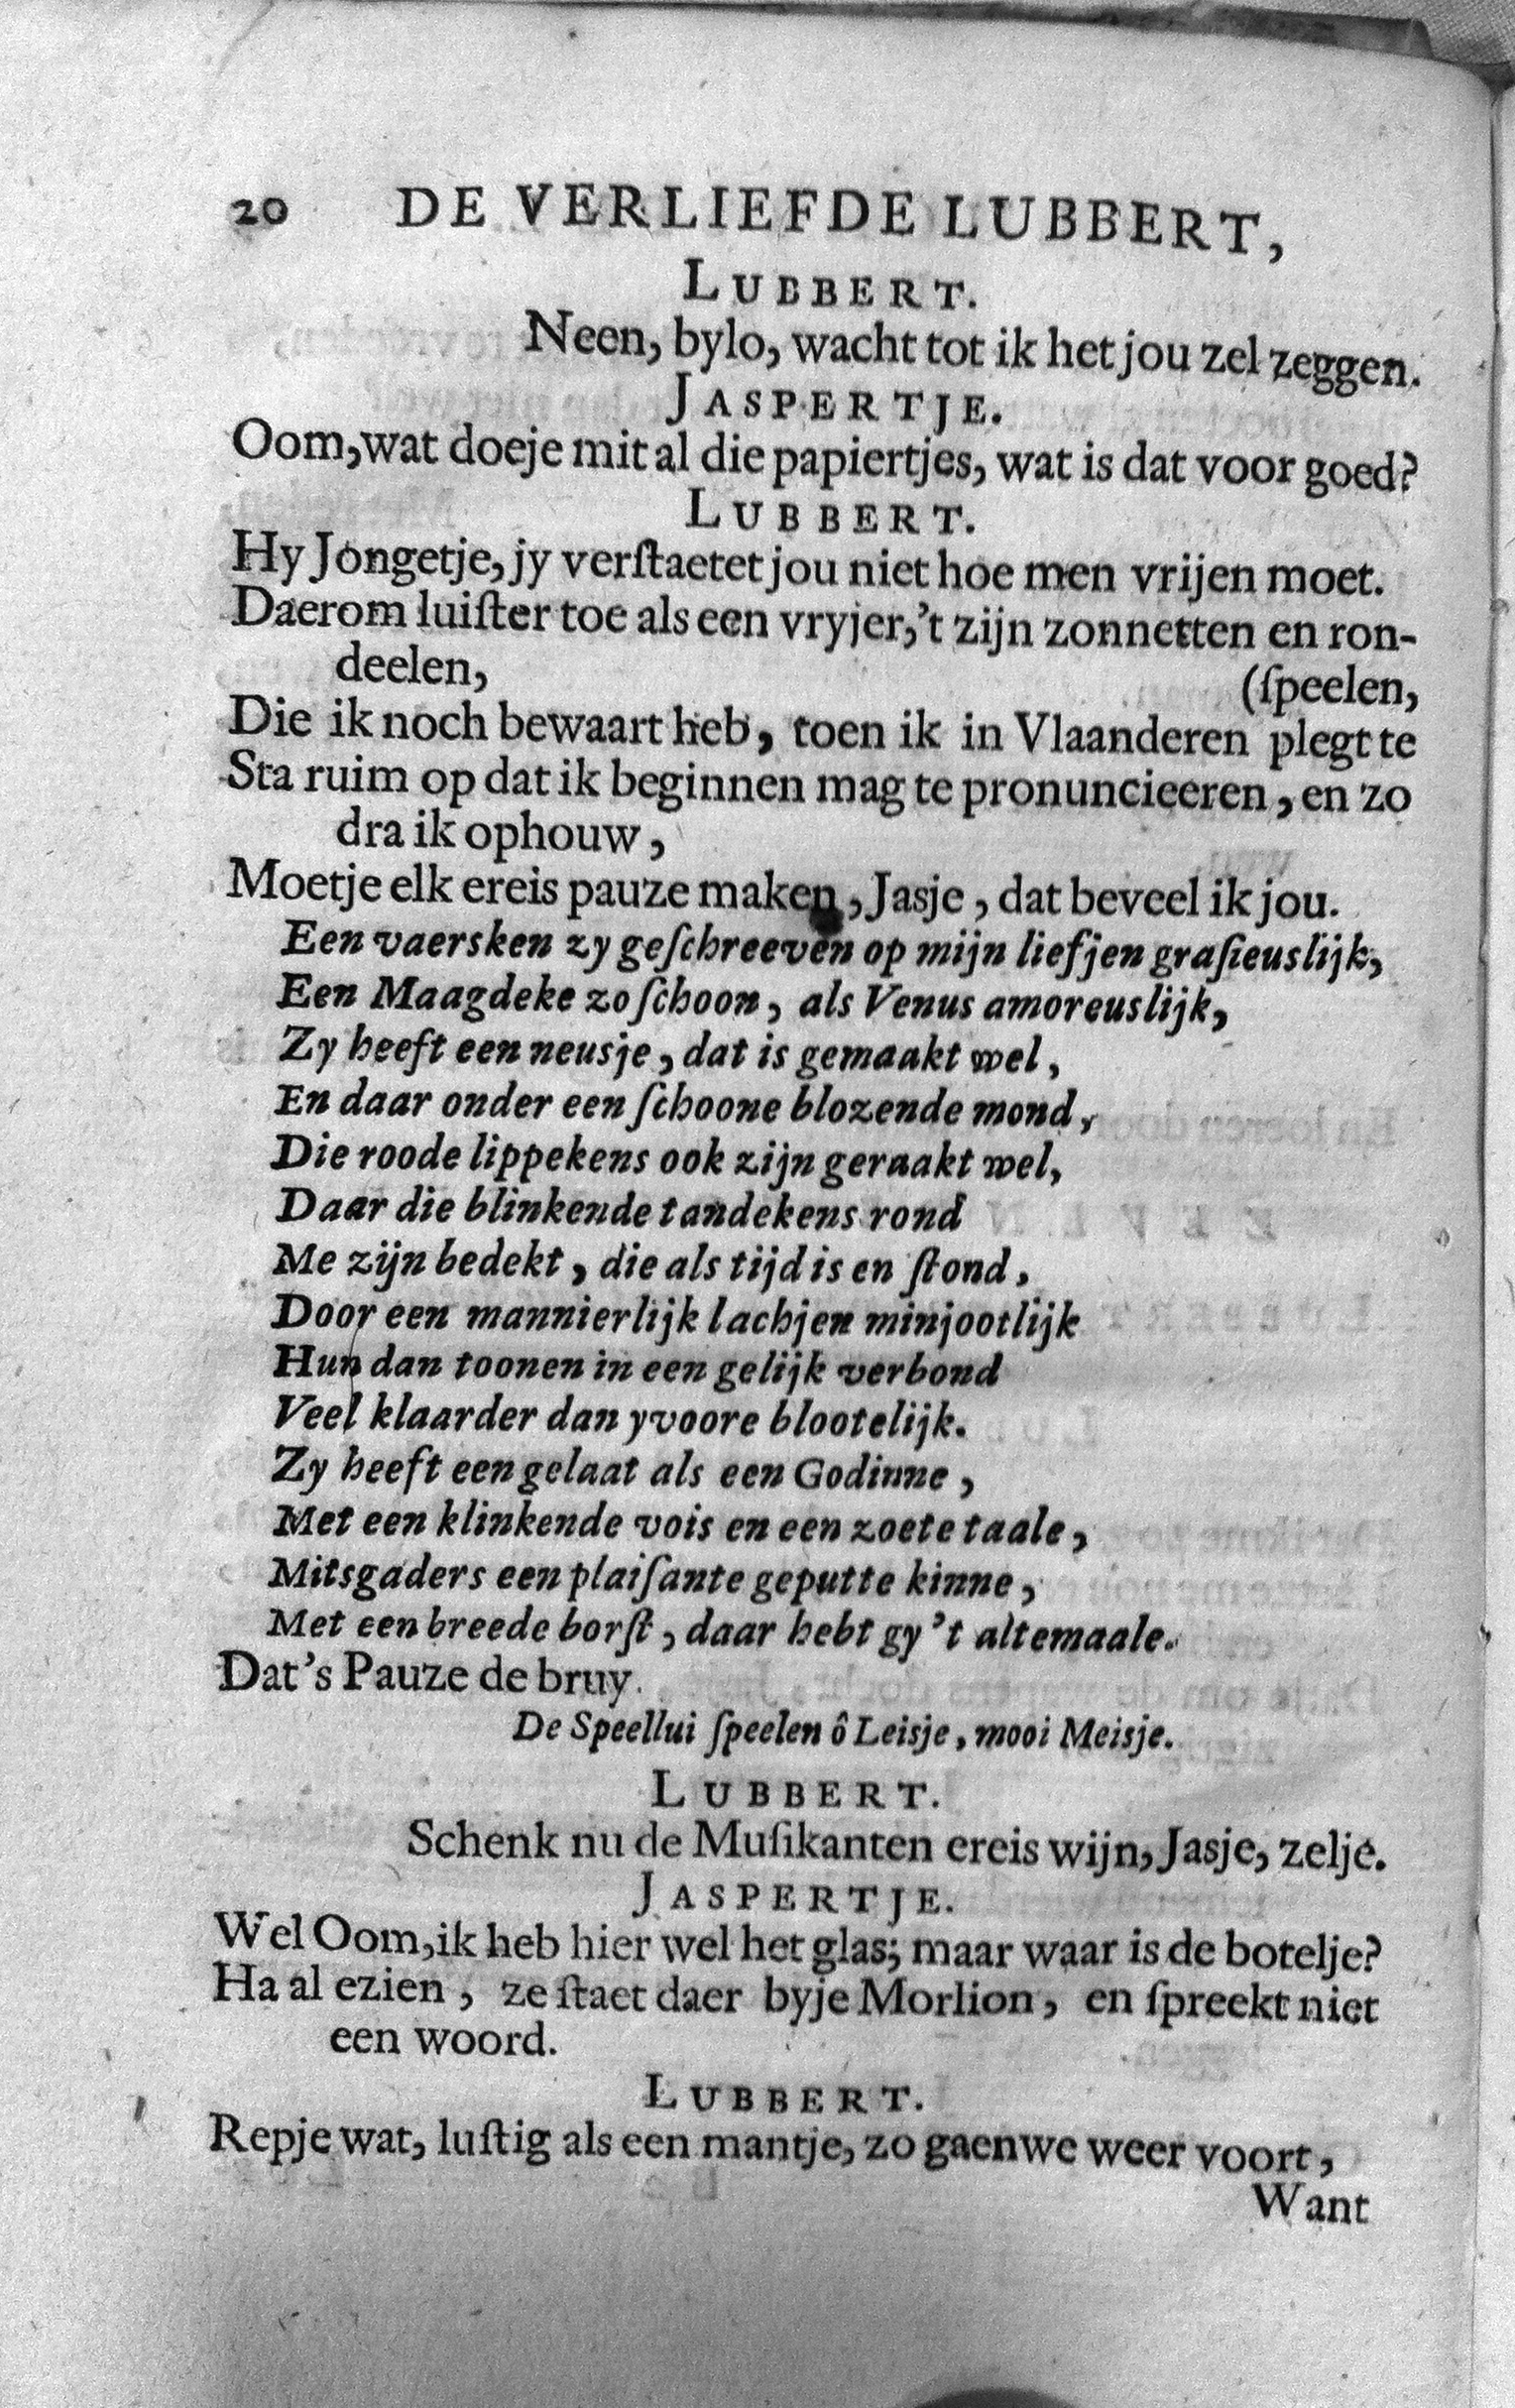 20 DE VERLIEFDE LUBBERT,
LUBBERT.
Neen, bylo, wacht tot ik het jou zel zeggen.
JASPERTJE.
Oom, wat doeje mit al die papiertjes, wat is dat voor goed?
LUBBERT.
Hy Jongetje, jy verſtaetet jou niet hoe men vrijen moet.
Daerom luiſter toe als een vryjer, 't zijn zonnetten en ron-
deelen, (ſpeelen,
Die ik noch bewaart heb, toen ik in Vlaanderen plegt te
Sta ruim op dat ik beginnen mag te pronuncieeren, en zo
dra ik ophouw,
Moetje elk ereis pauze maken, Jasje, dat beveel ik jou.
Een vaersken zy geſchreeven op mijn liefjen graſieuslijk,
Een Maagdeke zo ſchoon, als Venus amoreuslijk,
Zy heeft een neusje, dat is gemaakt wel,
En daar onder een ſchoone blozende mond,
Die roode lippekens ook zijn geraakt wel,
Daar die blinkende tandekens rond
Me zijn bedekt, die als tijd is en ſtond,
Door een mannierlijk lachjen minjootlijk
Hun dan toonen in een gelijk verbond
Veel klaarder dan yvoore blootelijk.
Zy heeft een gelaat als een Godinne,
Met een klinkende vois en een zoete taale,
Mitsgaders een plaiſante geputte kinne,
Met een breede borſt, daar hebt gy 't altemaale.
Dat's Pauze de bruy.
De Speellui ſpeelen ô Leisje, mooi Meisje.
LUBBERT.
Schenk nu de Muſikanten ereis wijn, Jasje, zelje.
JASPERTJE.
Wel Oom, ik heb hier wel het glas; maar waar is de botelje?
Ha al ezien, ze ſtaet daer byje Morlion, en ſpreekt niet
een woord.
LUBBERT.
Repje wat, luſtig als een mantje, zo gaenwe weer voort,
Want